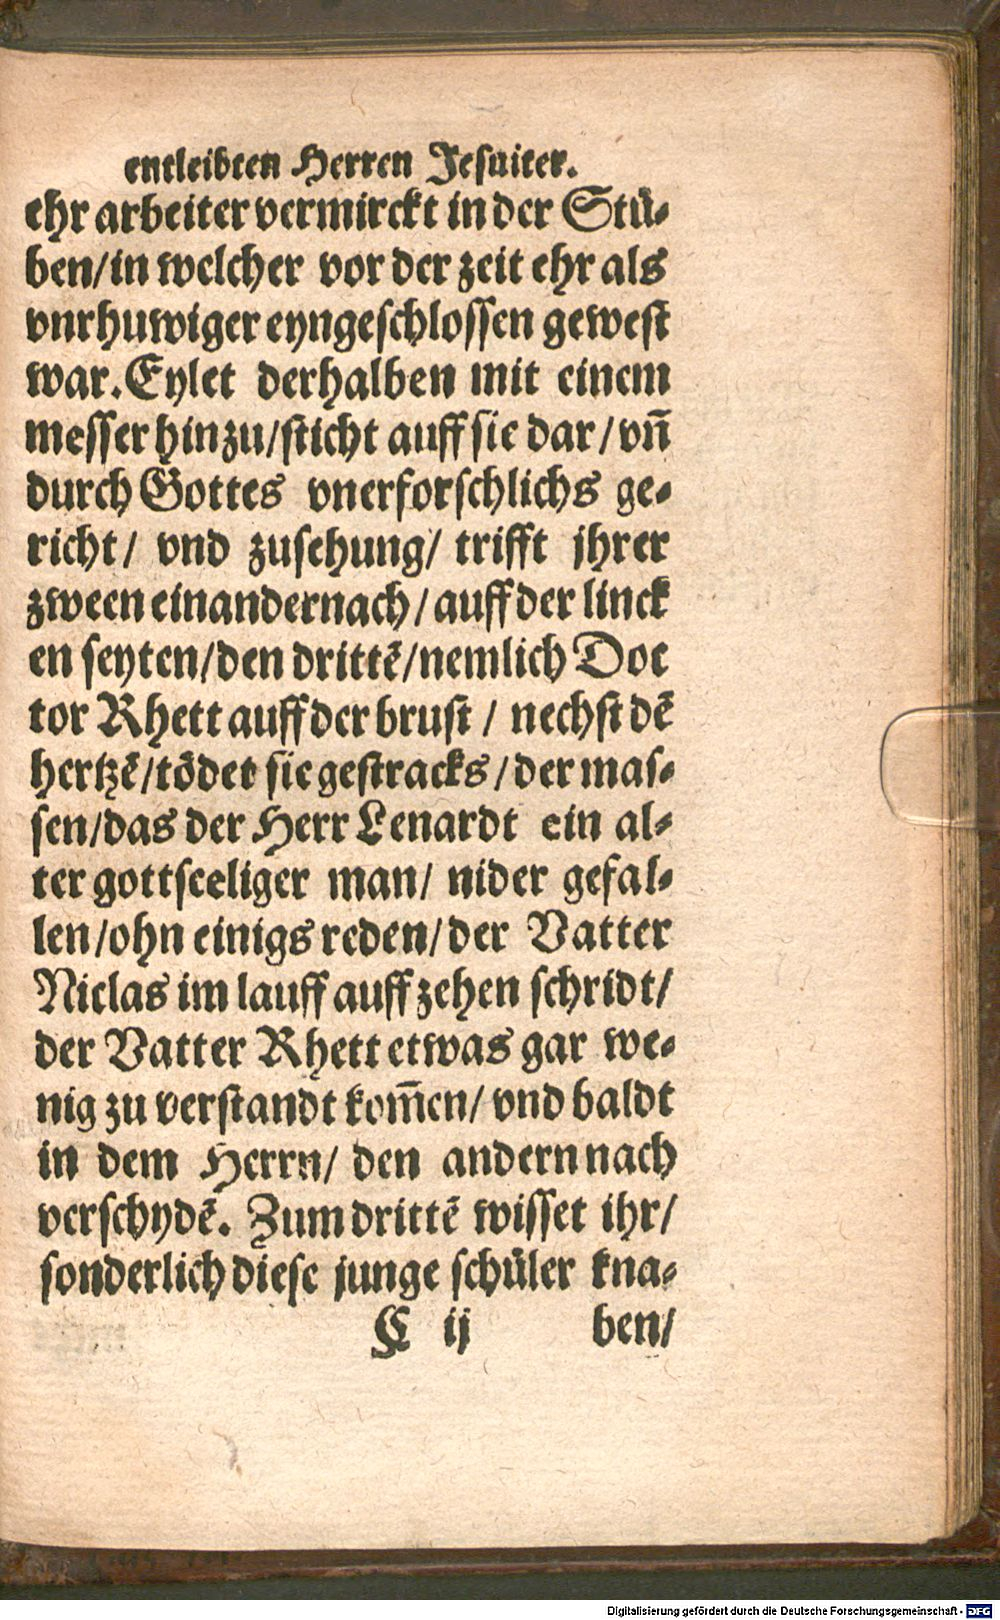 entleibten Herren Jesuiter.
ehr arbeiter vermirckt in der Stü-
ben/in welcher vor der zeit ehr als
vnrhuwiger eyngeschlossen gewest
war. Eylet derhalben mit einem
messer hinzu/sticht auff sie dar/vn̄
durch Gottes vnerforschlichs ge-
richt/ vnd zusehung/ trifft jhrer
zween einandernach/auff der linck
en seyten/den drittẽ/nemlich Doc
tor Rhett auff der brust/ nechst dẽ
hertzẽ/tödet sie gestracks/der mas-
sen/das der Herr Lenardt ein al-
ter gottseeliger man/ nider gefal-
len/ohn einigs reden/der Vatter
Niclas im lauff auff zehen schridt/
der Vatter Rhett etwas gar we-
nig zu verstandt kom̄en/vnd baldt
in dem Herrn/ den andern nach
verschydẽ. Zum drittẽ wisset ihr/
sonderlich diese junge schüler kna-
C ij ben/
Digitalisierung gefördert durch die Deutsche Forschungsgemeinschaft - DFG